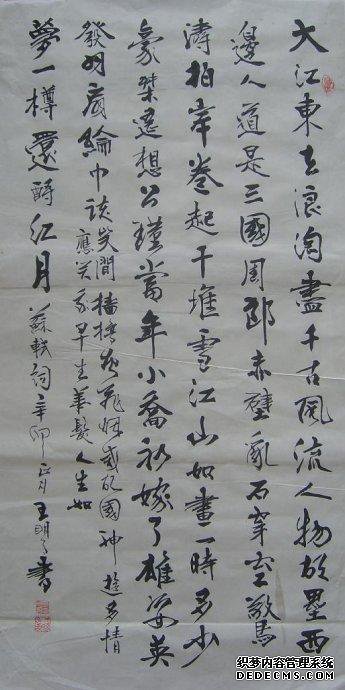 大江東去浪淘盡千古風流人物故壘西
邊人道是三國周郎赤壁亂石穿空驚
濤拍岸卷起千堆雪江山如畫一時多少
豪桀遙想公瑾當年小喬初嫁了雄姿英
發羽扇綸巾談笑間檣櫓灰飛烟滅故國神遊多情
應笑我早生華髮人生如
夢一樽還酹江月
蘇軾詞辛卯正月王明書
织梦内容管理系统
DEDECMS.COM